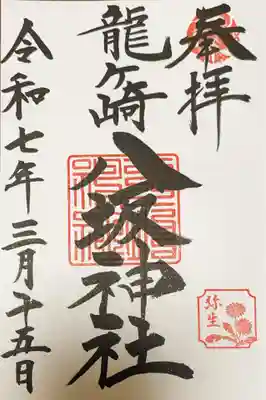 奉拝
龍ヶ崎
八坂神社
令和七年三月十五日
弥生